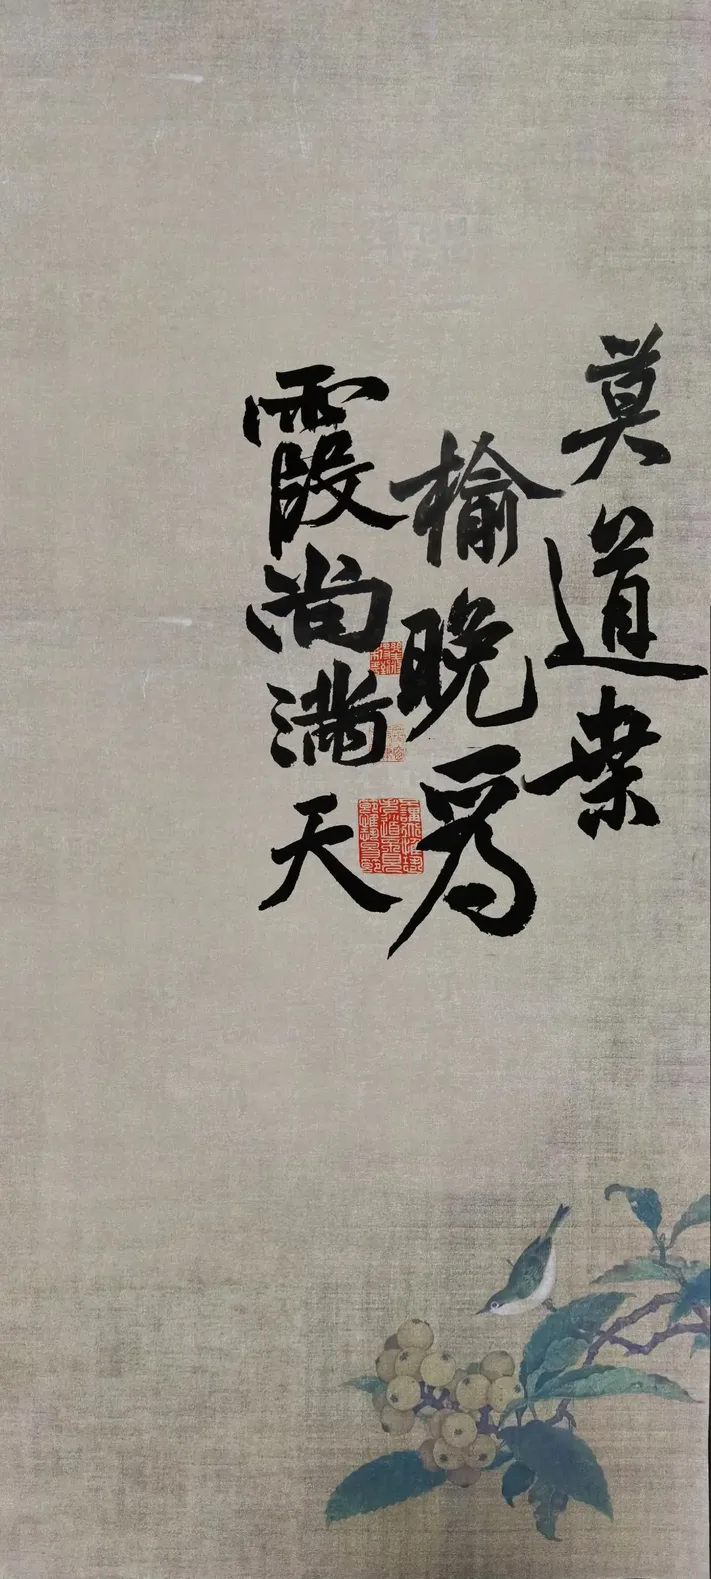 莫道桑
榆晚爲
霞尚滿天